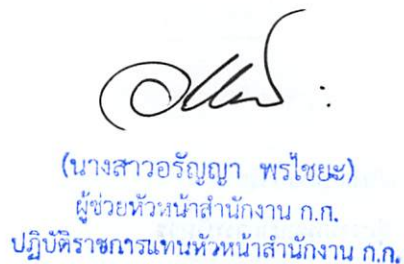 (นางสาวอรัญญา พรไชยะ)
ผู้ช่วยหัวหน้าสำนักงาน ก.ก.
ปฏิบัติราชการแทนหัวหน้าสำนักงาน ก.ก.